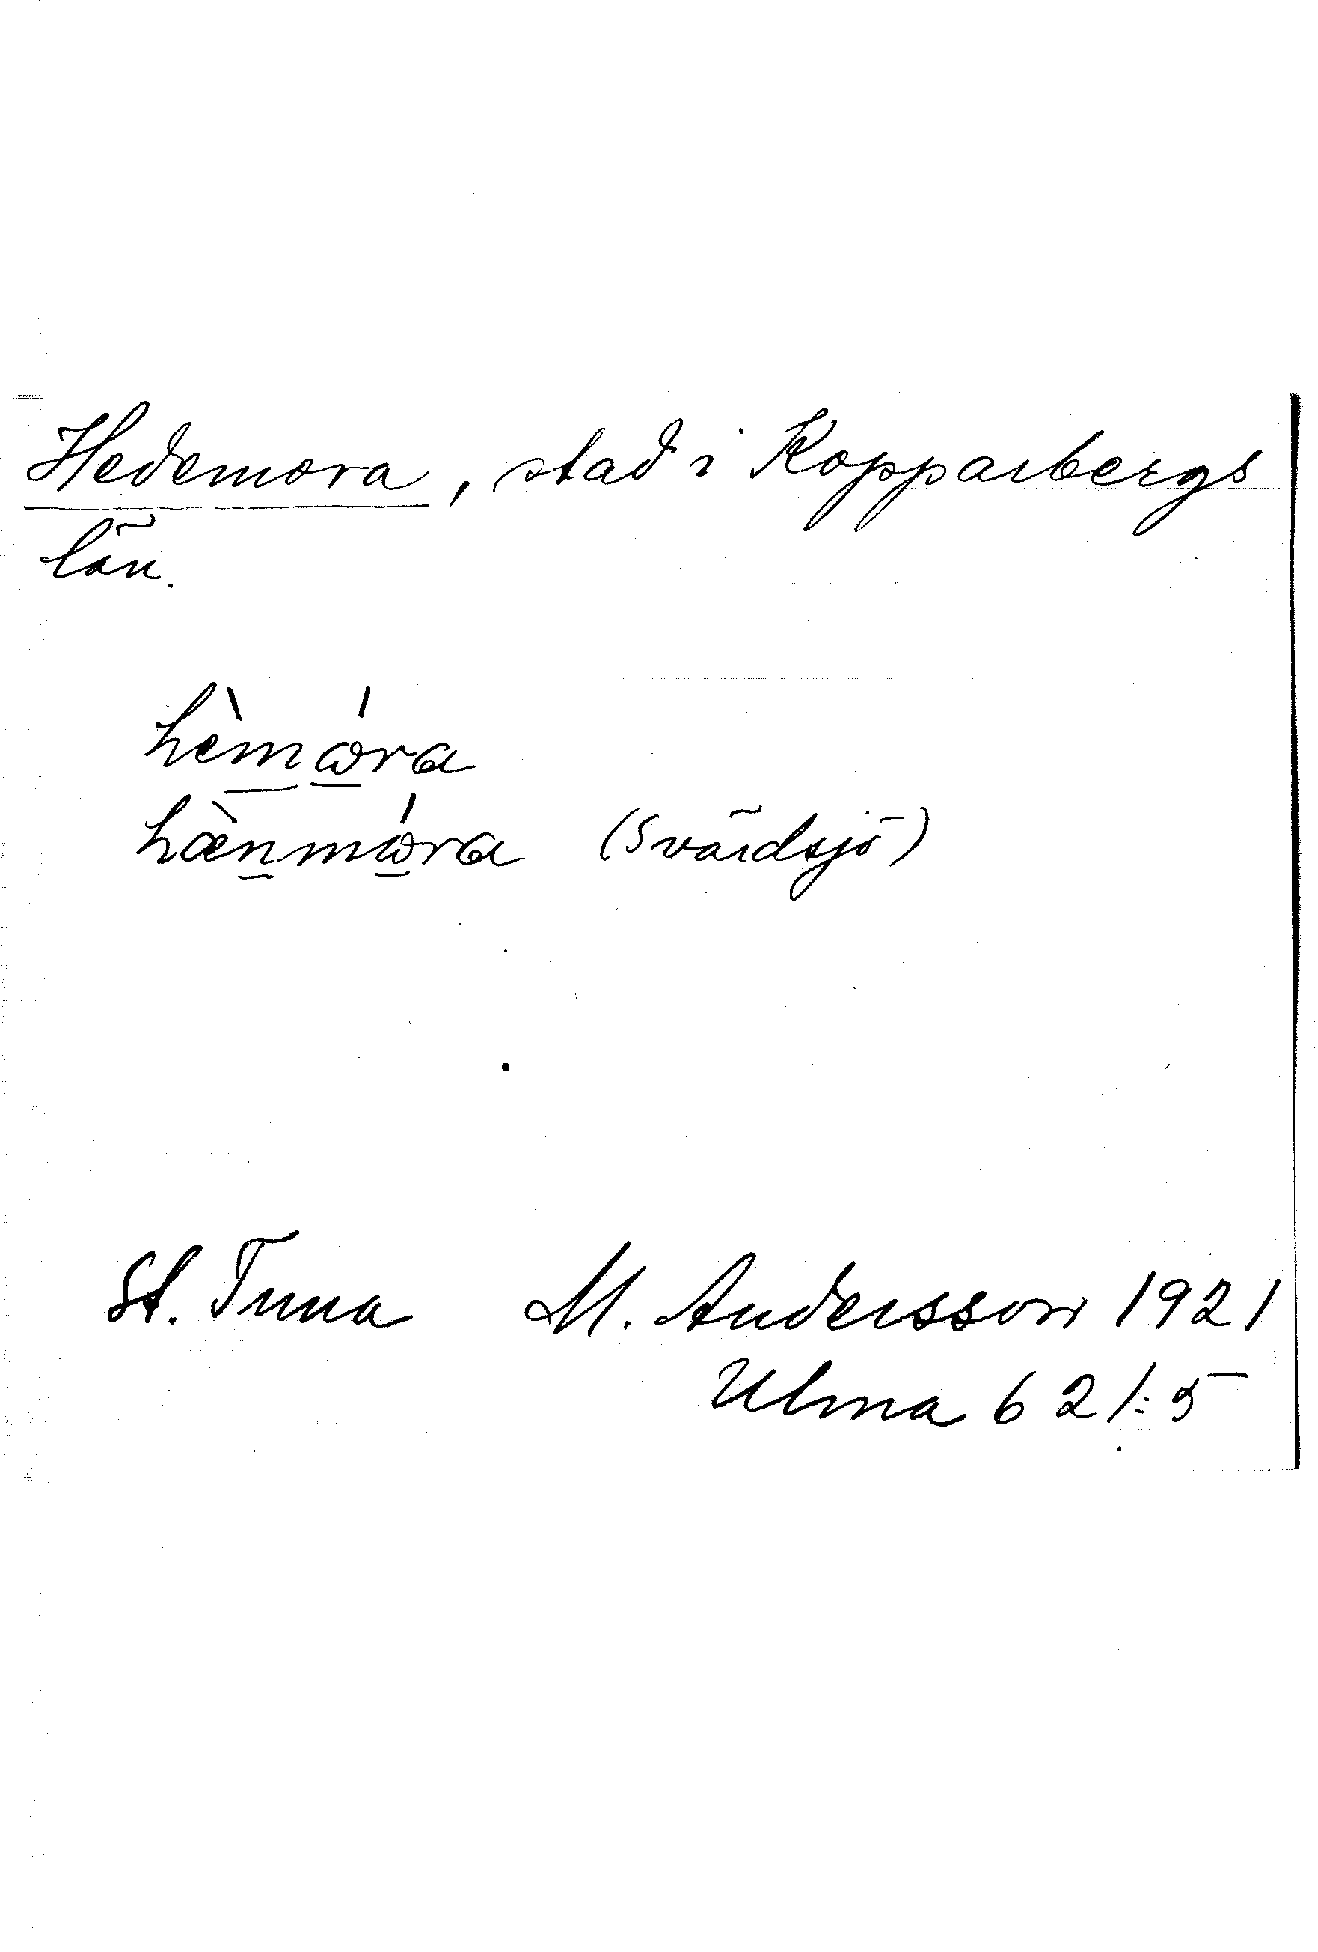 Hedemora, stad i Kopparbergs
län.
hèm̲ώ̲ra
hæ̀n̲mώ̲ra (Svärdsjö)
St. Tuna M. Andersson 1921
Ulma 621:5